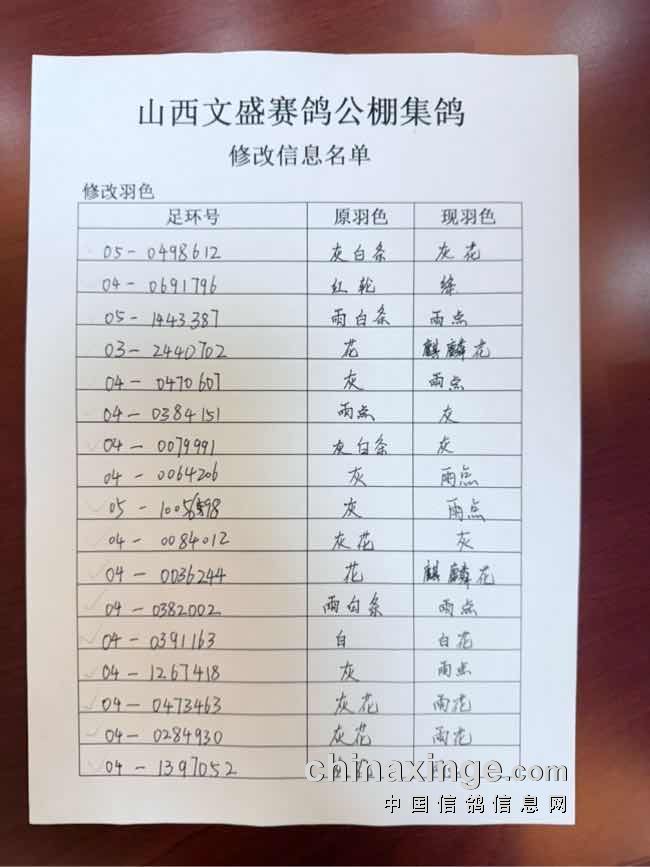 山西文盛赛鸽公棚集鸽
修改信息名单
修改羽色
足环号 原羽色 现羽色
05-0498612 灰白条 灰花
04-0691796 红轮 绛
05-1443387 雨白条 雨点
03-2440702 花 麒麟花
04-0470607 灰 雨点
04-0384151 雨点 灰
04-0079991 灰白条 灰
04-0064206 灰 雨点
灰 雨点
04-0084012 灰花 灰
04-0036244 花 麒麟花
04-0382002 雨白条 雨点
04-0391163 白 白花
04-1267418 灰 雨点
04-0473463 灰花 雨花
04-0284930 灰花 雨花
04-1397052
chinaxinge.com
中国信鸽信息网